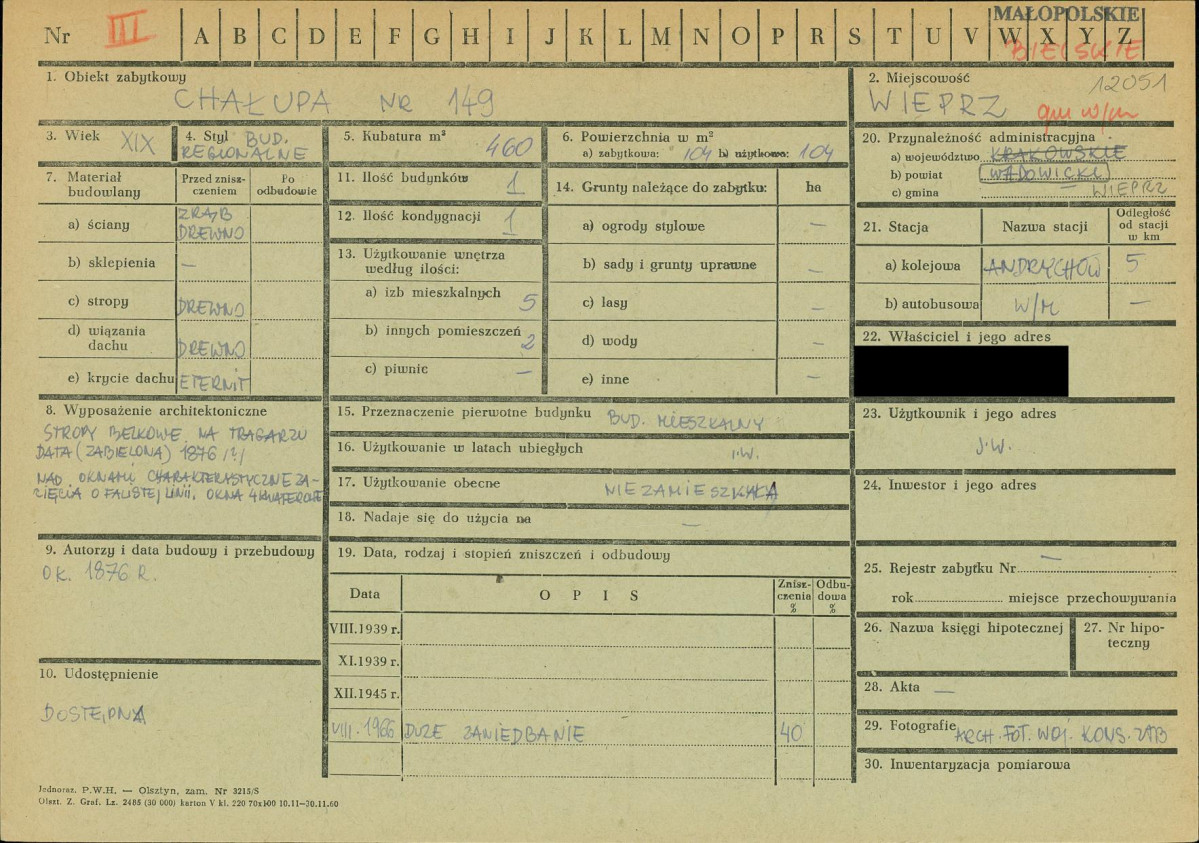 Nr III A B C D E F G H I J K L M N O P R S T U V W X Y Z
MAŁOPOLSKIE
BIELSKIE
1. Obiekt zabytkowy
CHAŁUPA NR 149
2. Miejscowość 12051
WIEPRZ
gm w/m
3. Wiek XIX
4. Styl BUD.
REGIONALNE
5. Kubatura m³ 460
6. Powierzchnia w m²
a) zabytkowa: 104 b) użytkowa: 104
20. Przynależność administracyjna
a) województwo KRAKOWSKIE
b) powiat WADOWICKI
c) gmina WIEPRZ
7. Materiał
budowlany
Przed znisz-
czeniem
Po
odbudowie
a) ściany ZRĄB
DREWNO
b) sklepienia —
c) stropy DREWNO
d) wiązania
dachu DREWNO
e) krycie dachu ETERNIT
11. Ilość budynków 1
12. Ilość kondygnacji 1
13. Użytkowanie wnętrza
według ilości:
a) izb mieszkalnych 5
b) innych pomieszczeń 2
c) piwnic —
14. Grunty należące do zabytku: ha
a) ogrody stylowe —
b) sady i grunty uprawne —
c) lasy —
d) wody —
e) inne —
21. Stacja Nazwa stacji Odległość
od stacji
w km
a) kolejowa ANDRYCHÓW 5
b) autobusowa W/M —
22. Właściciel i jego adres
8. Wyposażenie architektoniczne
STROPY BELKOWE NA TRAGARZU
DATA (ZABIELONA) 1876 /?/
NAD OKNAMI CHARAKTERYSTYCZNE ZA-
CIĘCIA O FALISTEJ LINII. OKNA 4 KWATEROWE
15. Przeznaczenie pierwotne budynku BUD. MIESZKALNY
16. Użytkowanie w latach ubiegłych J.W.
17. Użytkowanie obecne NIEZAMIESZKAŁA
18. Nadaje się do użycia na —
23. Użytkownik i jego adres
J.W.
24. Inwestor i jego adres
—
9. Autorzy i data budowy i przebudowy
OK. 1876 R.
19. Data, rodzaj i stopień zniszczeń i odbudowy
Data O P I S Znisz-
czenia
% Odbu-
dowa
%
VIII.1939 r.
XI.1939 r.
XII.1945 r.
VIII.1966 DUŻE ZANIEDBANIE 40
25. Rejestr zabytku Nr
rok miejsce przechowywania
26. Nazwa księgi hipotecznej
27. Nr hipo-
teczny
28. Akta —
29. Fotografie ARCH. FOT. WOJ. KONS. ZAB
30. Inwentaryzacja pomiarowa
10. Udostępnienie
DOSTĘPNA
Jednoraz. P.W.H. — Olsztyn, zam. Nr 3215/S
Olszt. Z. Graf. Lz. 2485 (30 000) karton V kl. 220 70x100 10.11–30.11.60